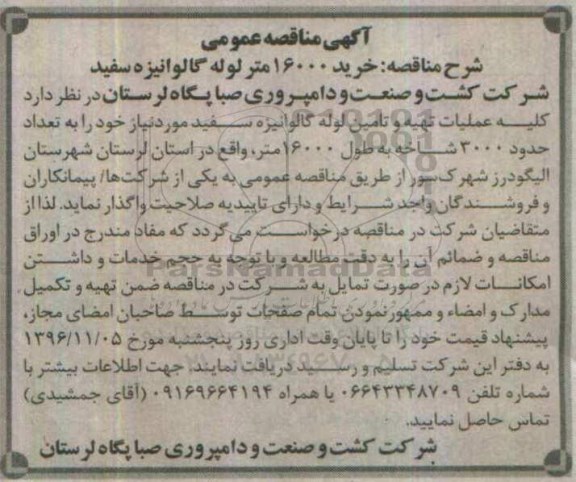 آگهی مناقصه عمومی
شرح مناقصه: خرید ۱۶۰۰۰ متر لوله گالوانیزه سفید
شرکت کشت و صنعت و دامپروری صبا پگاه لرستان در نظر دارد
کلیه عملیات تهیه و تامین لوله گالوانیزه سفید مورد نیاز خود را به تعداد
حدود ۳۰۰۰ شاخه به طول ۱۶۰۰۰ متر، واقع در استان لرستان شهرستان
الیگودرز شهرک سور از طریق مناقصه عمومی به یکی از شرکت‌ها/ پیمانکاران
و فروشندگان واجد شرایط و دارای تاییدیه صلاحیت واگذار نماید. لذا از
متقاضیان شرکت در مناقصه درخواست می گردد که مفاد مندرج در اوراق
مناقصه و ضمائم آن را به دقت مطالعه و با توجه به حجم خدمات و داشتن
ParsNamadData
امکانات لازم در صورت تمایل به شرکت در مناقصه ضمن تهیه و تکمیل
مدارک و امضاء و ممهور نمودن تمام صفحات توسط صاحبان امضای مجاز،
پیشنهاد قیمت خود را تا پایان وقت اداری روز پنجشنبه مورخ ۱۳۹۶/۱۱/۰۵
به دفتر این شرکت تسلیم و رسید دریافت نمایند. جهت اطلاعات بیشتر با
شماره تلفن ۰۶۶۴۳۳۴۸۷۰۹ یا همراه ۰۹۱۶۹۶۶۴۱۹۴ (آقای جمشیدی)
تماس حاصل نمایید.
شرکت کشت و صنعت و دامپروری صبا پگاه لرستان